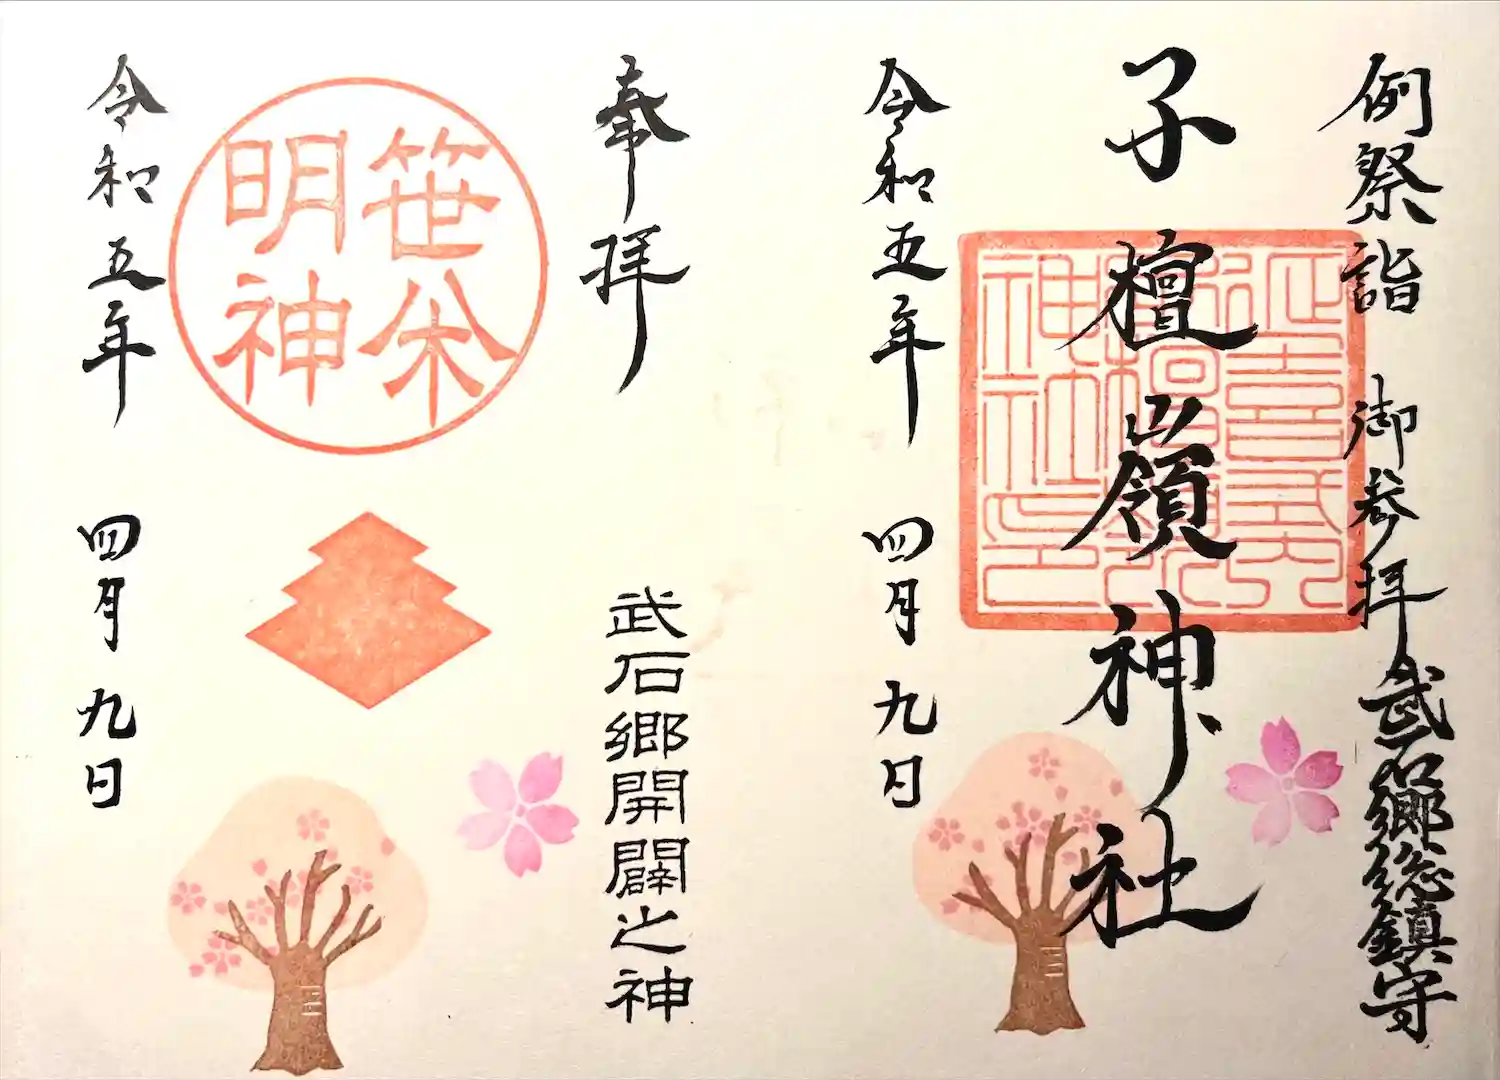 例祭詣 御参拝 武石郷総鎮守
子檀嶺神社
延喜式内
神社印
令和五年 四月九日
奉拝
武石郷開闢之神
笹
明神
令和五年 四月九日